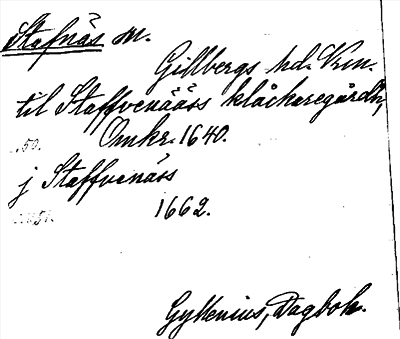 Stafnäs sn.
Gillbergs hd. Vrm.
til Staffvenääss klåckaregårdh,
Omkr. 1640.
j Staffvenäss
1662.
Gyllenius, Dagbok.